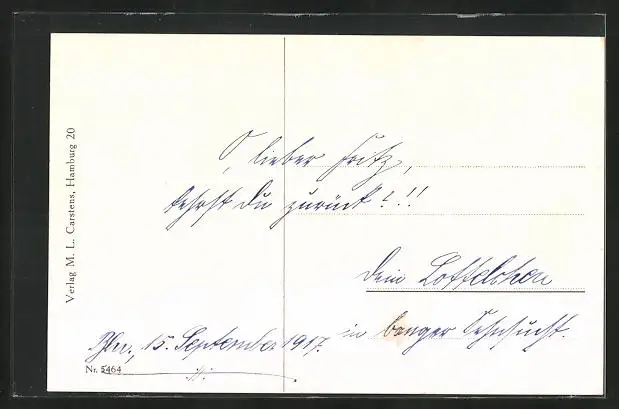 O, lieber Fritz,
kehrst Du zurück?!!
Dein
in banger Sehnsucht.
15. September 1917.
Verlag M. L. Carstens, Hamburg 20
Nr. 5464